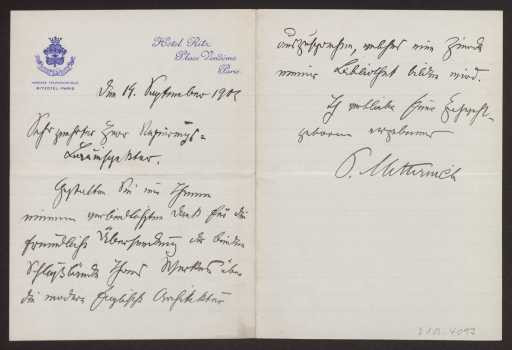 Hotel Ritz
Place Vendôme
Paris.
ADRESSE TELEGRAPHIQUE
RITZOTEL-PARIS
Den 14. September 190
Sehr geehrter Herr Regierungs-
Baumeister.
Gestatten Sie mir Ihnen
meinen verbindlichsten Dank für die
freundliche Übersendung der beiden
Schlußbände Ihres Werkes über
die moderne Englische Architektur
auszusprechen, welches eine Zierde
meiner Bibliothek bilden wird.
Ich verbleibe Euer Hochwohl-
geboren ergebener
P. Metternich